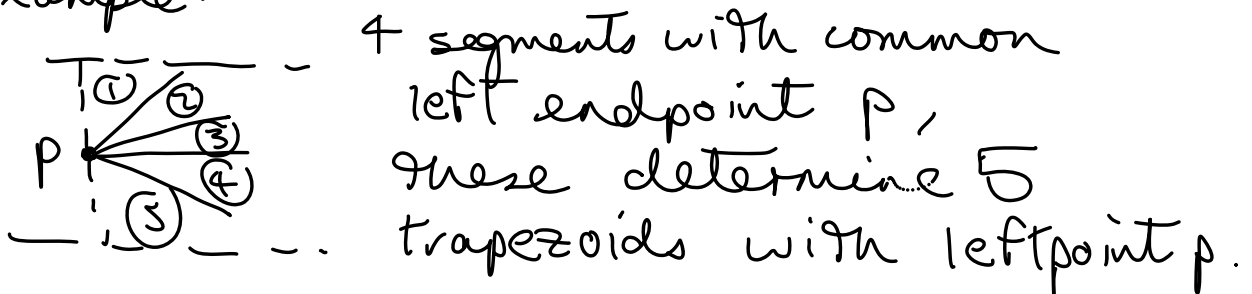 xample
4 segments with common
① ② left endpoint p,
p ③ ④ these determine 5
⑤ trapezoids with leftpoint p.